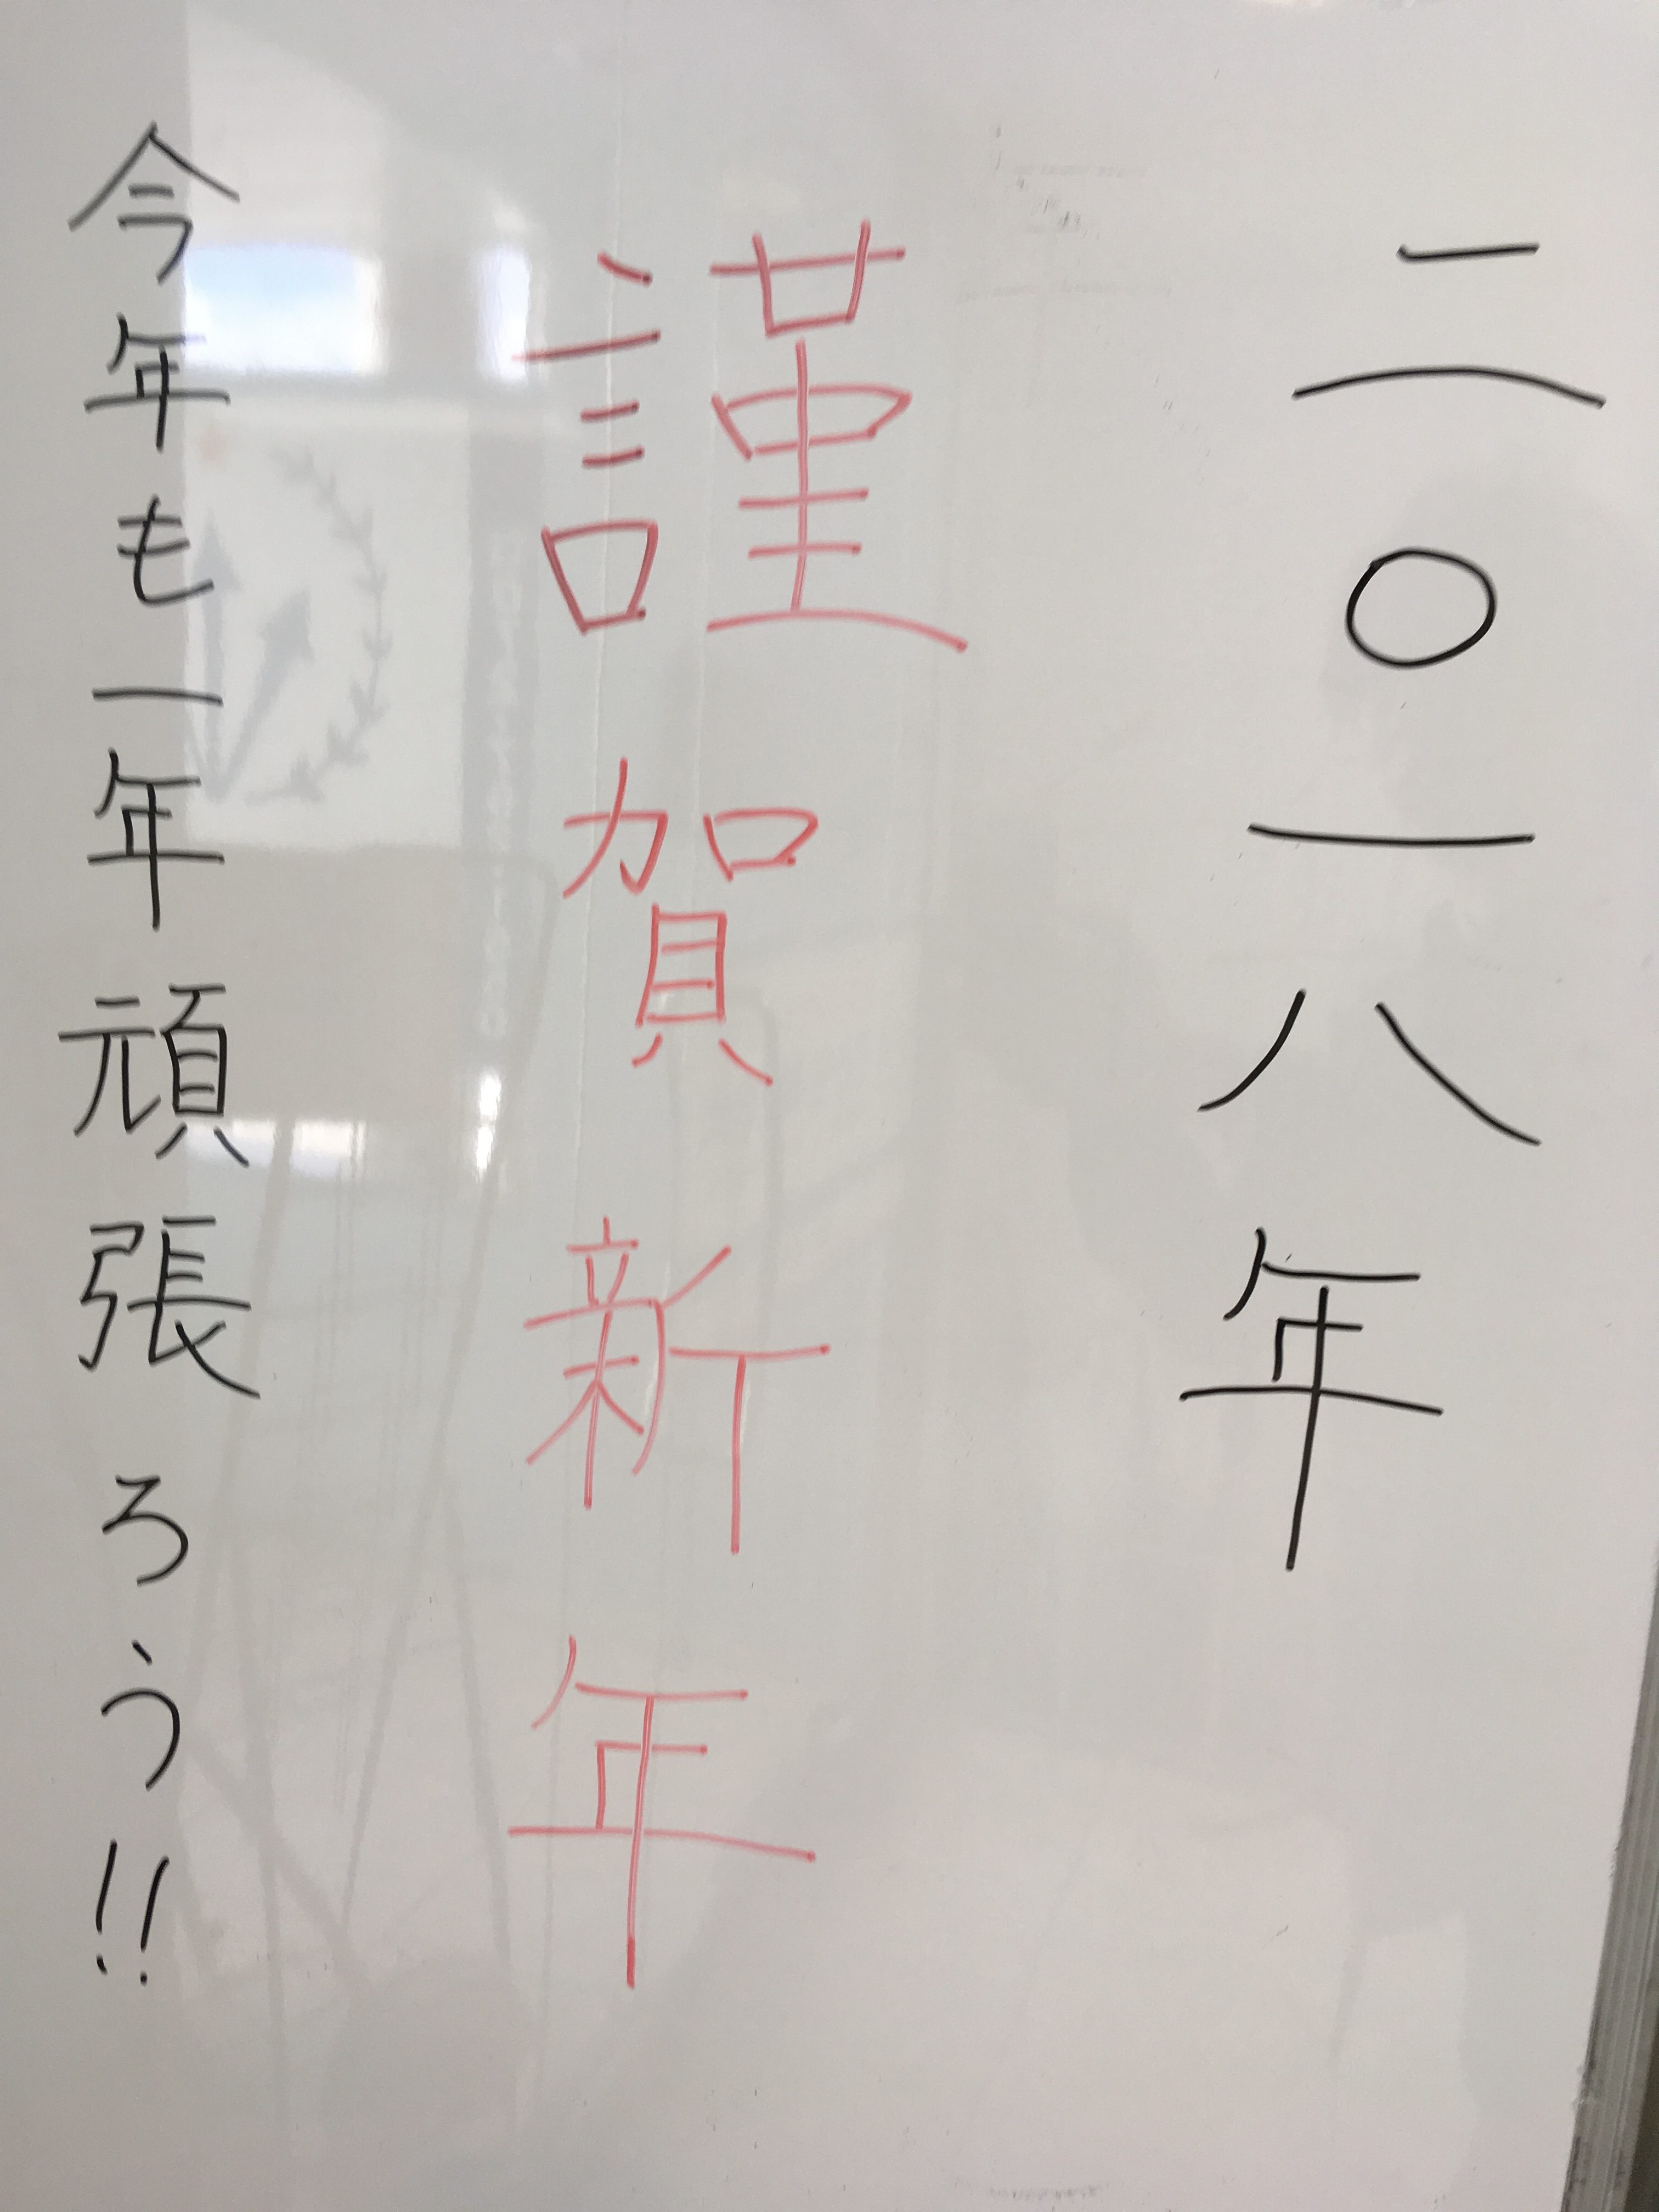 二〇一八年
謹賀新年
今年も一年頑張ろう!!